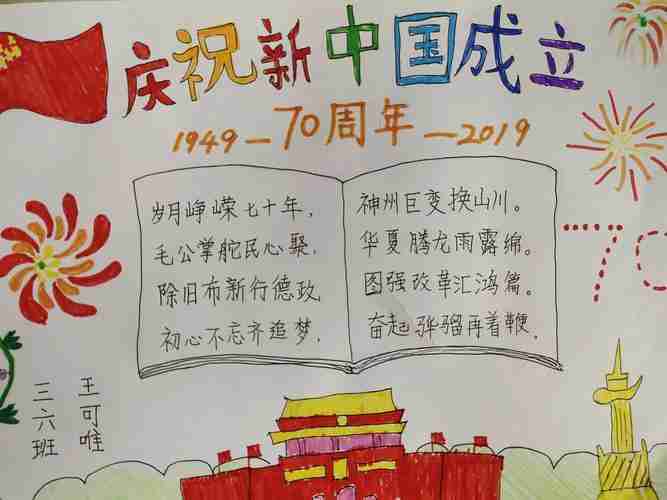 庆祝新中国成立
1949—70周年—2019
岁月峥嵘七十年,
毛公掌舵民心聚,
除旧布新行德政,
初心不忘齐追梦,
神州巨变换山川。
华夏腾龙雨露绵。
图强改革汇鸿篇。
奋起骅骝再着鞭,
70
三六班
王可唯